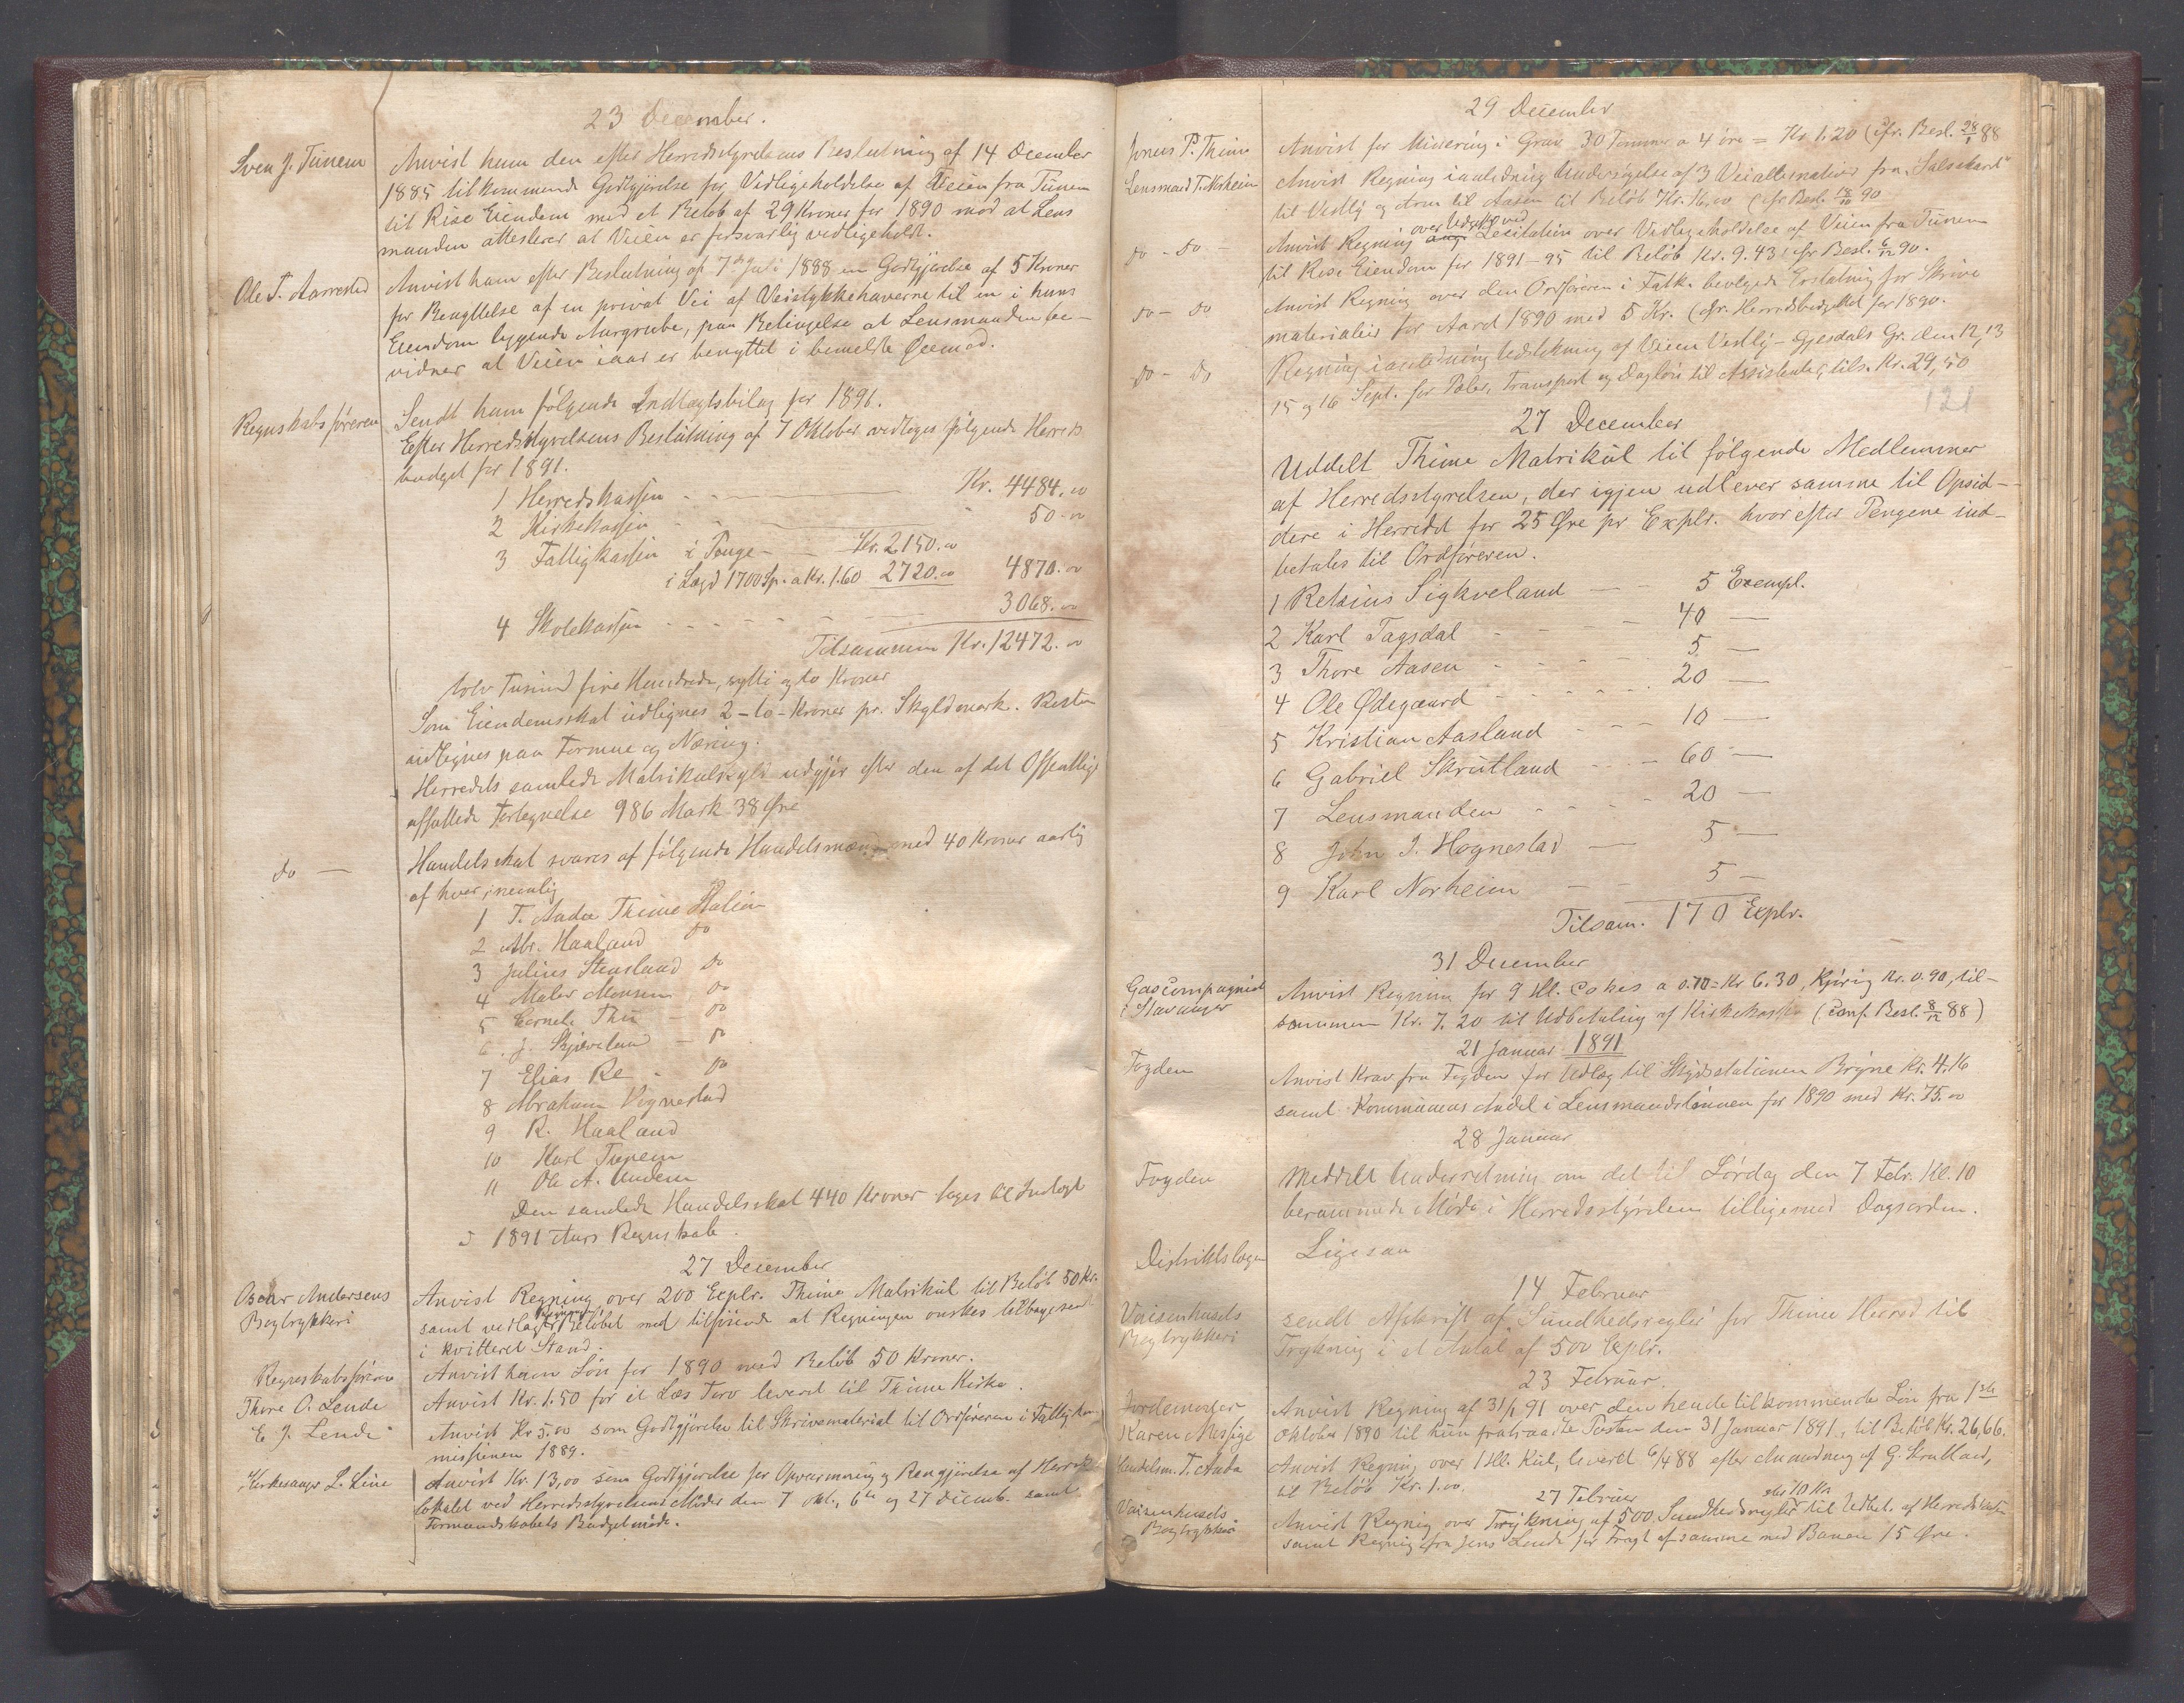 23 December.
Sven J. Tunem
Anvist ham den efter Herredsstyrelsens Beslutning af 14 December
1885 tilkommende Godtgjørelse for Vedligeholdelse af Veien fra Tunem
til Rise Eiendom med et Beløb af 29 Kroner for 1890 mod at Lens
manden attesterer at Veien er forsvarlig vedligeholdt.
Ole T. Aarrestad
Anvist ham efter Beslutning af 7de Juli 1888 en Godtgjørelse af 5 Kroner
for Benyttelse af en privat Vei af Veistykkehaverne til en i hans
Eiendom liggende Aurgrube, paa Betingelse at Lensmanden be-
vidner at Veien iaar er benyttet i bemeldte Øiemed.
Regnskabsføreren
Sendt ham følgende Indtægtsbilag for 1891.
Efter Herredsstyrelsens Beslutning af 7 Oktober vedtoges følgende Herreds
budget for 1891.
1 Herredskassen Kr. 4484.00
2 Kirkekassen - 50.00
3 Fattigkassen i Penge - Kr. 2150.00
i Lægd 1700 Sp. a Kr. 1.60 2720.00 4870.00
4 Skolekassen - 3068.00
Tilsammen Kr. 12472.00
tolv Tusind fire Hundrede, sytti og to Kroner
Som Eiendomsskat udlignes 2 - to - Kroner pr. Skyldmark. Resten
udlignes paa Formue og Næring.
Herredets samlede Matrikulskyld udgjør efter den af det Offentlige
affattede Fortegnelse 986 Mark 38 Øre
do —
Handelsskat svares af følgende Handelsmænd med 40 Kroner aarlig
af hver, nemlig
1 T. Anda Thime Station
2 Abr. Haaland do
3 Julius Stensland do
4 Maler Monsen do
5 Cornele Thu - do
6 J. Skjæveland - do
7 Elias Re - do
8 Abraham Vignestad
9 R. Haaland
10 Karl Tunem
11 Ole A. Undem
Den samlede Handelsskat 440 Kroner tages til Indtægt
i 1891 Aars Regnskab.
27 December
Oscar Andersens
Bogtrykkeri
Anvist Regning over 200 Explr. Thime Matrikul til Beløb 50 Kr.
samt vedlagt Beløbet med tilføiende at Regningen ønskes tilbagesendt
i kvitteret Stand.
Regnskabsføreren
Anvist ham Løn for 1890 med Beløb 50 Kroner.
Thore O. Lende
Anvist Kr. 1.50 for et Læs Torv leveret til Thime Kirke.
E. J. Lende
Anvist Kr 5.00 som Godtgjørelse til Skrivematerial til Ordføreren i Fattigkom
missionen 1889.
Kirkesanger L. Line
Anvist Kr. 13,00 som Godtgjørelse for Opvarmning og Rengjørelse af Herreds
lokalet ved Herredsstyrelsens Møder den 7 Okt., 6te og 27 Decemb. samt
Formandskabets Budgetmøde.
29 December
Jonas P. Thime
Anvist for Minering i Grav 30 Tommer a 4 øre = Kr 1.20 (cfr. Besl. 28/1 88
Lensmand T. Norheim
Anvist Regning i anledning Undersøgelse af 3 Veialternativer fra
til Vestly og Aasen til Beløb Kr. 16,00 (cfr Besl. 18/10 90
do - do -
over Udgifter ved
Anvist Regning ang. Licitation over Vedligeholdelse af Veien fra Tunem
til Rise Eiendom for 1891-95 til Beløb Kr. 9.43 cfr Besl. 6/12 90.
do - do
Anvist Regning over den Ordføreren i Fatk. bevilgede Erstatning for Skrive
materialier for Aaret 1890 med 5 Kr. (cfr. Herredsbudgettet for 1890.
do - do
Regning i anledning Udstikning af Veien Vestly - Gjesdals Gr. den 12, 13
15 og 16 Sept. for Pæler, Transport og Dagløn til Assistenter, tils. Kr. 29,50
121
27 December
Uddelt Thime Matrikul til følgende Medlemmer
af Herredsstyrelsen, der igjen udlever samme til Opsid-
dere i Herredet for 25 Øre pr Explr. hvorefter Pengene ind-
betales til Ordføreren.
1 Retsius Sigkveland — 5 Exempl.
2 Karl Tagsdal - 40 —
3 Thore Aasen - 5 —
4 Ole Ødegaard - 20 —
5 Kristian Aasland - 10 —
6 Gabriel Skrutland - 60 —
7 Lensmanden - 20 —
8 John J. Hognestad — 5 —
9 Karl Norheim — 5 —
Tilsam. 170 Explr.
31 December
Gascompagniet
i Stavanger
Anvist Regning for 9 Hl. Cokes a 0.70 = Kr 6.30, Kjøring Kr. 0.90, til-
sammen Kr. 7.20 til Udbetaling af Kirkekassen (Conf. Besl. 8/12 88)
21 Januar 1891
Fogden
Anvist Krav fra Fogden for Udlæg til Skydsstationen Bryne Kr. 4.16
samt Kommunens Andel i Lensmandslønnen for 1890 med Kr. 75.00
28 Januar
Fogden
Meddelt Underretning om det til Lørdag den 7 Febr. Kl. 10
berammede Møde i Herredsstyrelsen tilligemed Dagsorden.
Distriktslægen
Ligesaa
14 Februar
Vaisenhusets
Bogtrykkeri
sendt Afskrift af Sundhedsregler for Thime Herred til
Trykning i et Antal af 500 Explr.
23 Februar.
Jordemoder
Karen Messige
Anvist Regning af 31/1 91 over den hende tilkommende Løn fra 1ste
Oktober 1890 til hun fratraadte Posten den 31 Januar 1891, til Beløb Kr. 26,66.
Handelsm. T. Anda
Anvist Regning over 1 Hl. Kul, leveret 6/4 88 efter Anmodning af G. Skrutland,
til Beløb Kr. 1.00.
27 Februar
Vaisenhusets
Bogtrykkeri
stor 10 Kr
Anvist Regning over Trykning af 500 Sundhedsregler til Udbet. af Herredskassen
samt Regning fra Jens Lende for Fragt af samme med Banen 15 Øre.